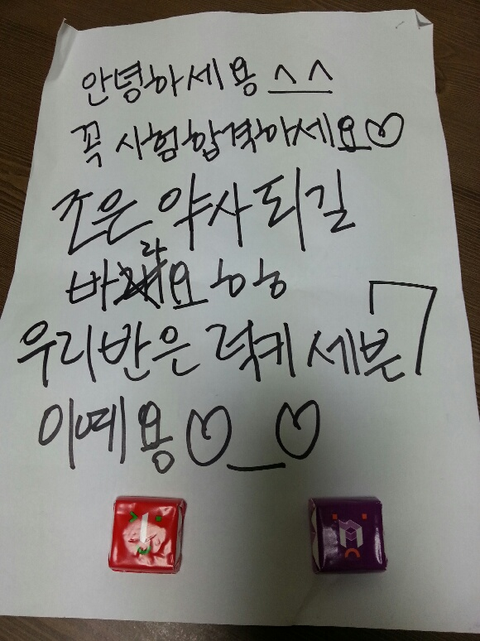 안녕하세용 ^^
꼭 시험합격하세요♡
조은 약사 되길
바랴요ㅎㅎ
우리반은 럭키 세븐 7
이예용♡_♡